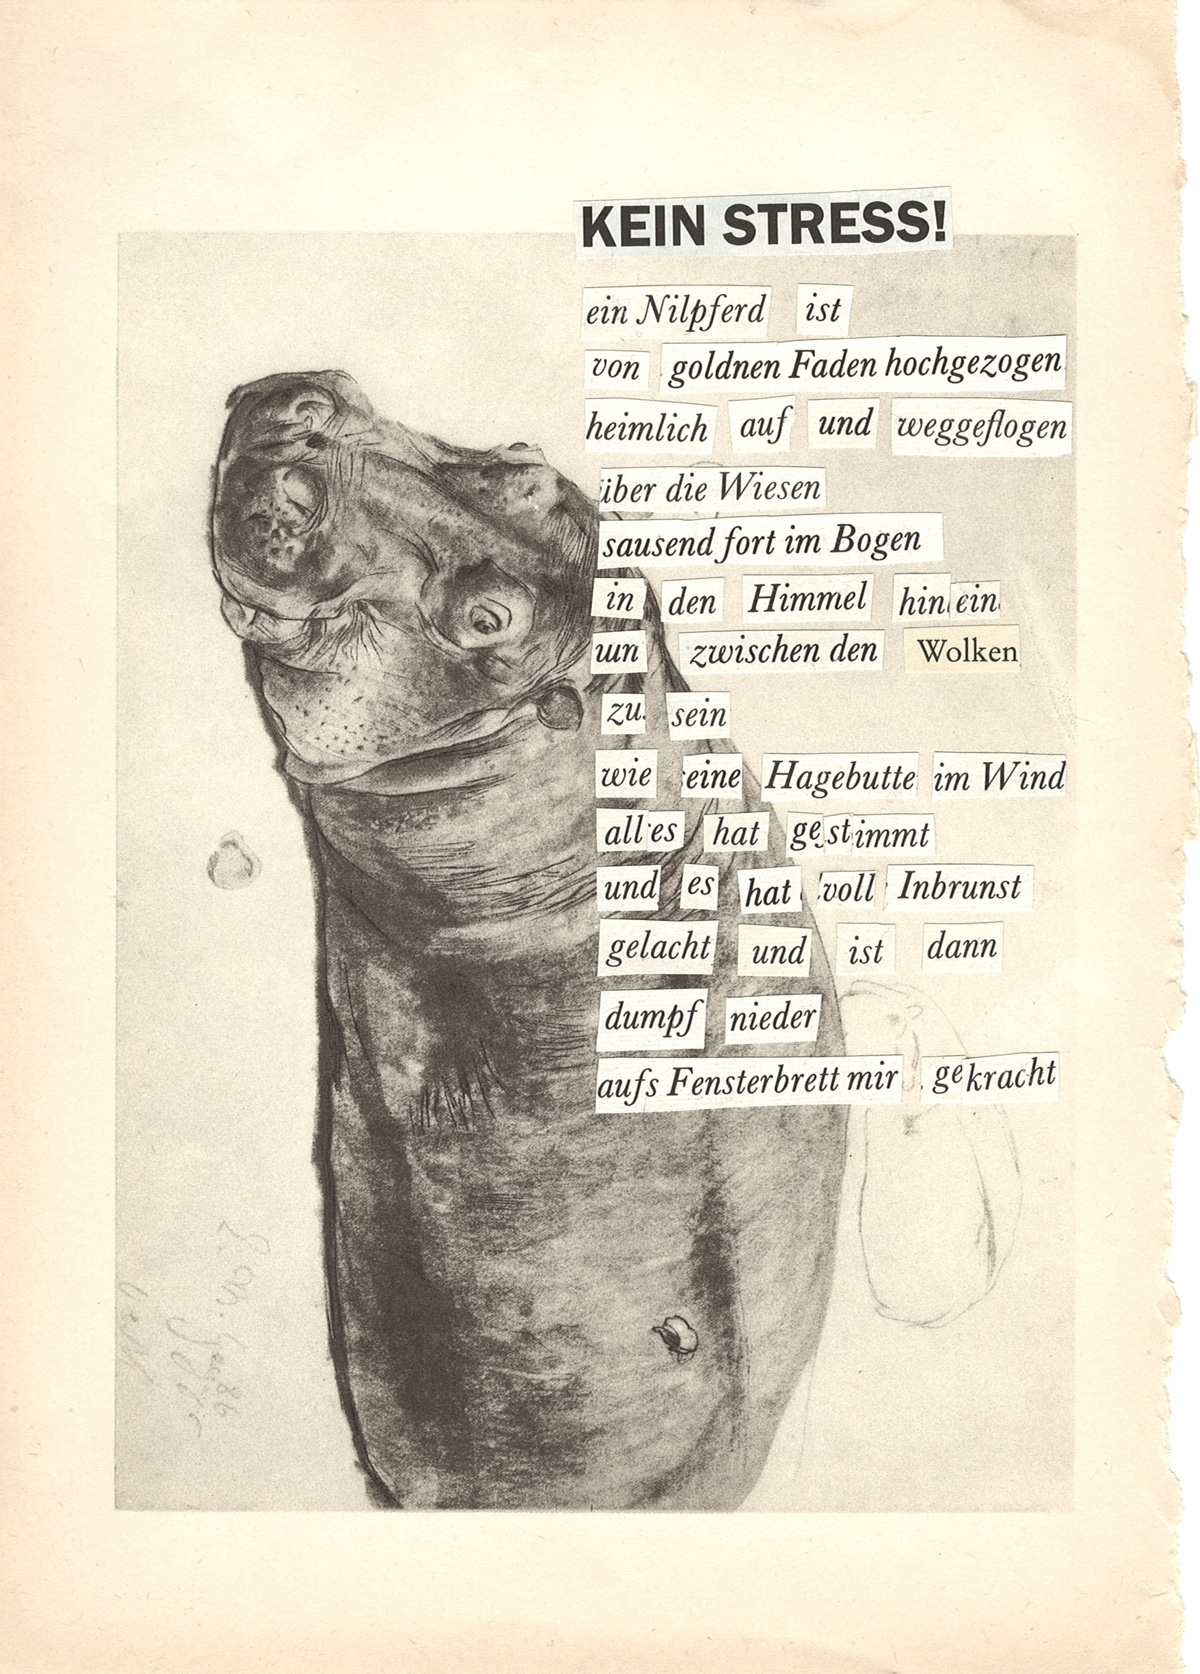 KEIN STRESS!
ein Nilpferd ist
von goldnen Faden hochgezogen
heimlich auf und weggeflogen
über die Wiesen
sausend fort im Bogen
in den Himmel hinein
un zwischen den Wolken
zu sein
wie eine Hagebutte im Wind
alles hat gestimmt
und es hat voll Inbrunst
gelacht und ist dann
dumpf nieder
aufs Fensterbrett mir gekracht